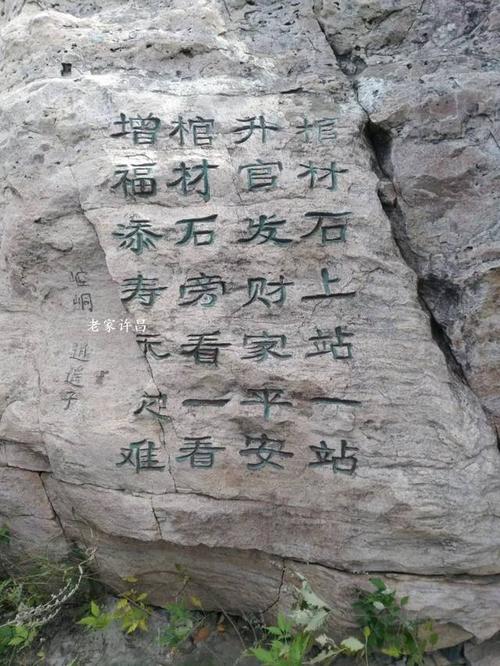 棺材石上站一站
升官发财家平安
棺材石旁看一看
增福添寿无难
逍遥子
老家许昌